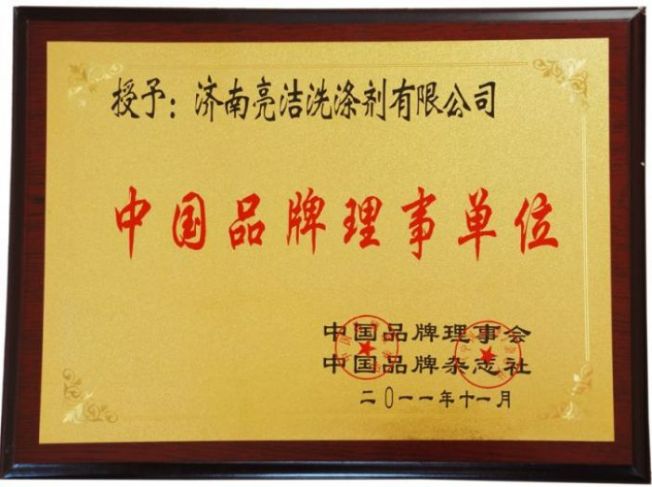 授予：济南亮洁洗涤剂有限公司
中国品牌理事单位
中国品牌理事会
中国品牌杂志社
二〇一一年十一月